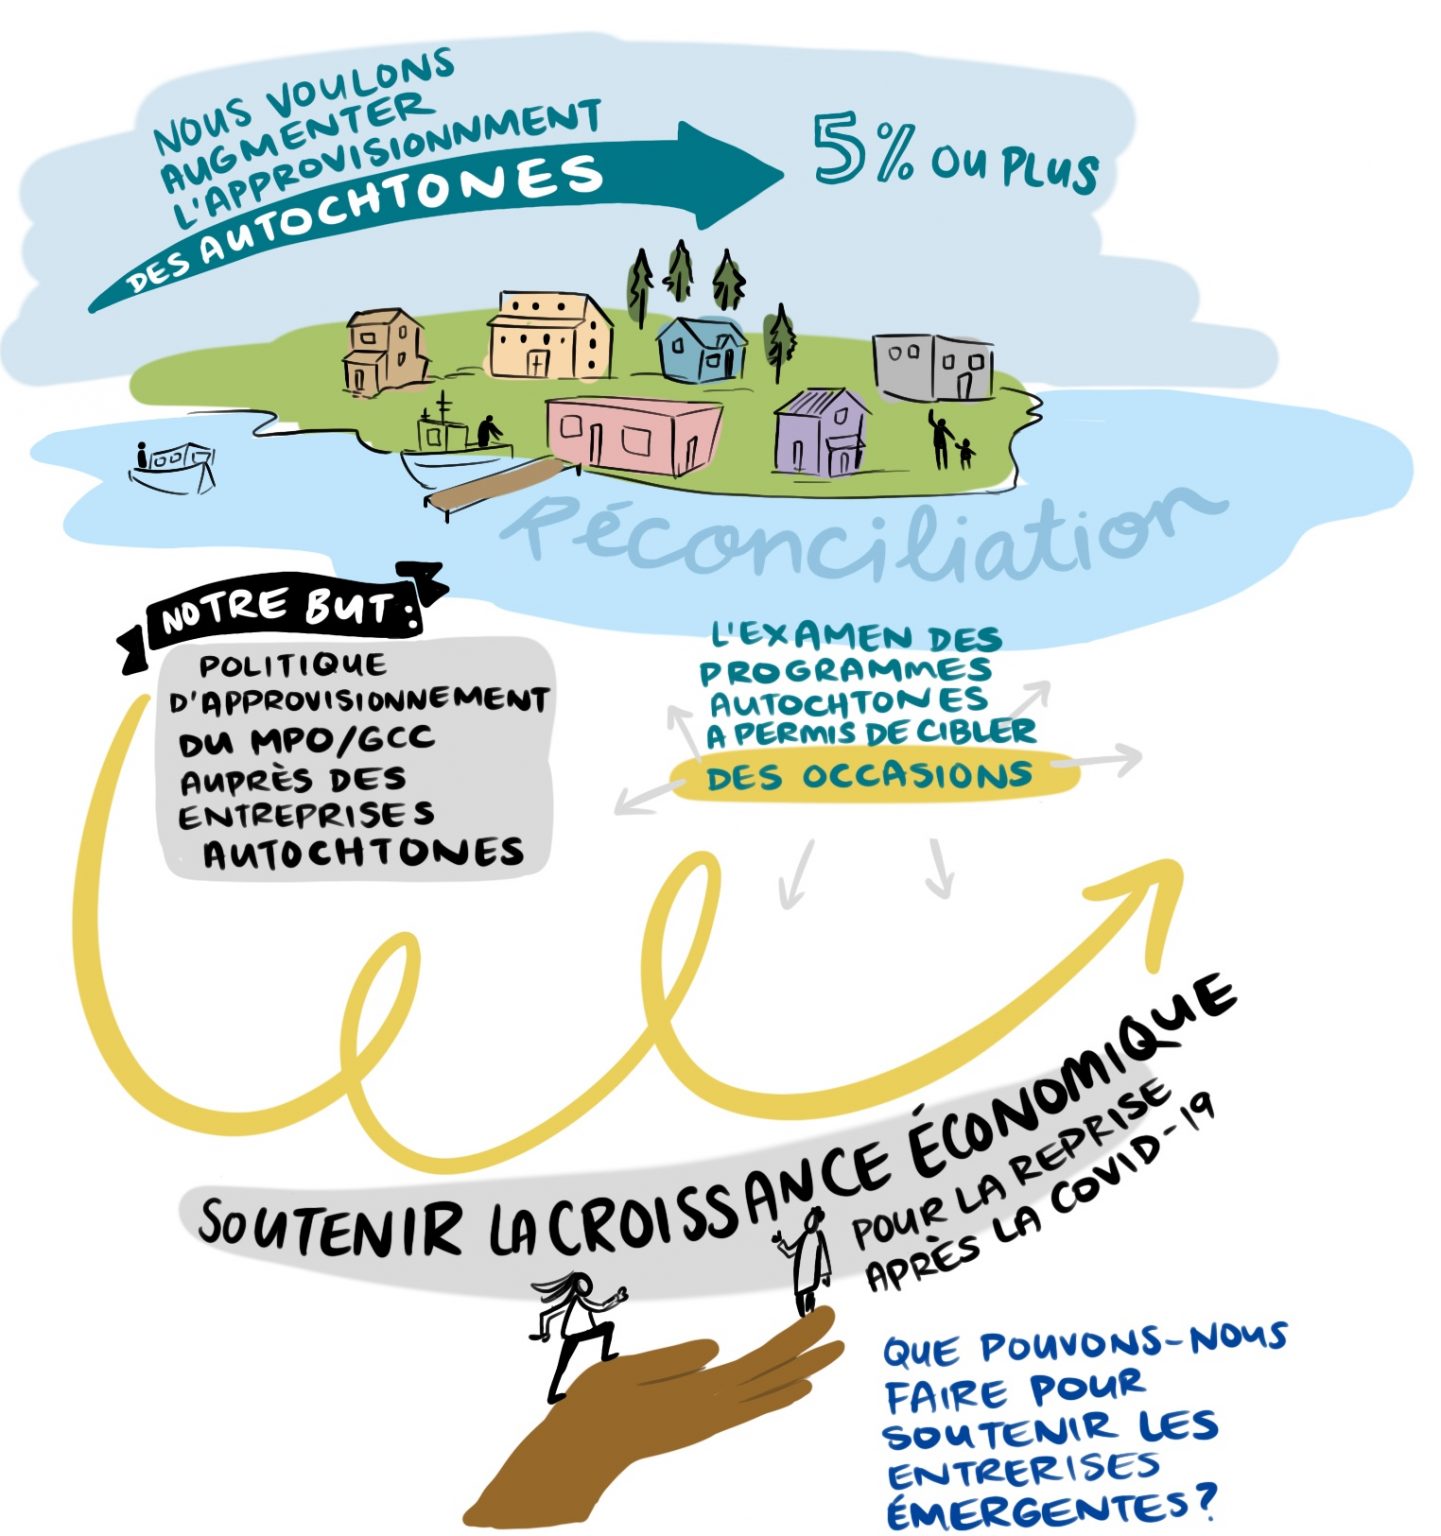 NOUS VOULONS
AUGMENTER
L'APPROVISIONNMENT
DES AUTOCHTONES
5% OU PLUS
Réconciliation
NOTRE BUT:
POLITIQUE
D'APPROVISIONNEMENT
DU MPO/GCC
AUPRÈS DES
ENTREPRISES
AUTOCHTONES
L'EXAMEN DES
PROGRAMMES
AUTOCHTONES
A PERMIS DE CIBLER
DES OCCASIONS
SOUTENIR LA CROISSANCE ÉCONOMIQUE
POUR LA REPRISE
APRÈS LA COVID-19
QUE POUVONS-NOUS
FAIRE POUR
SOUTENIR LES
ENTRERISES
ÉMERGENTES?